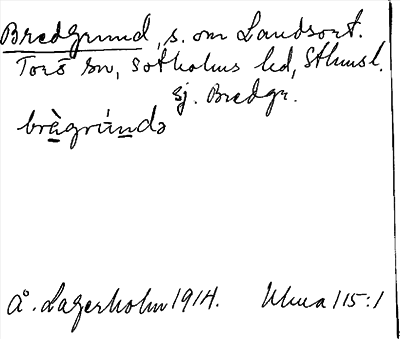 Bredgrund, s. om Landsort.
Torö sn, Sotholms hd, Sthmsl.
sj. Bredgr.
bràgrúndə
Å. Lagerholm 1914. Uma 115:1